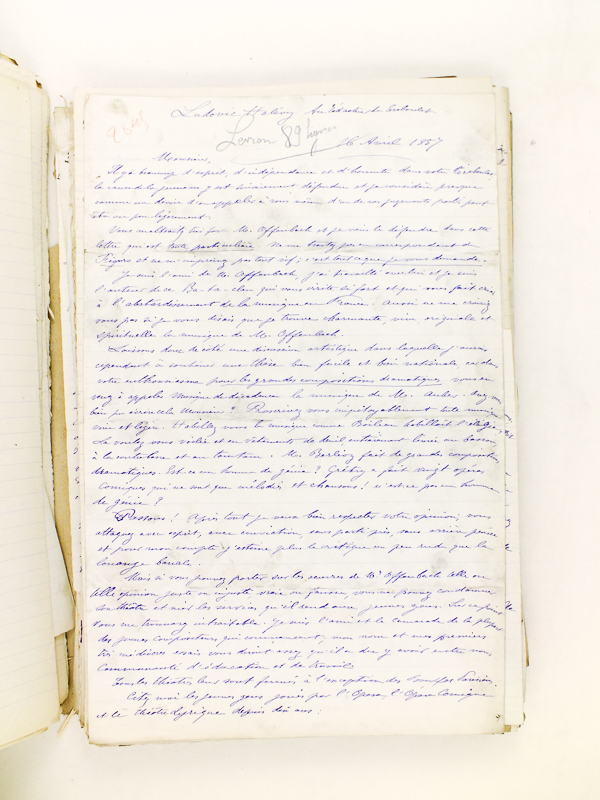 Ludovic Halévy Au rédacteur du
Levron 89
16 Avril 1857
Monsieur,
Il y a beaucoup d'esprit, d'indépendance et d'honneur dans votre
la cause de la jeunesse y est vivement défendue et je voudrais presque
comme un devoir d'en appeler à vous même d'un de vos jugements porté peut
être un peu légèrement.
Vous maltraitez fort M. Offenbach et je viens le défendre dans cette
lettre qui est toute particulière. Ne me traitez pas en correspondant du
Figaro et ne m'imprimez pas tout vif; c'est tout ce que je vous demande.
Je suis l'ami de M. Offenbach, j'ai travaillé avec lui et je suis
l'auteur de ce Ba-ta-clan qui vous irrite si fort et qui vous fait crier
à l'abatardissement de la musique en France. Aussi ne me croirez
vous pas si je vous disais que je trouve charmante, vive originale et
spirituelle la musique de M. Offenbach.
Laissons donc de côté une discussion artistique dans laquelle j'aurais
cependant à soutenir une thèse bien facile et bien nationale, car dans
votre enthousiasme pour les grandes compositions dramatiques vous en
venez à appeler musique de décadence la musique de M. Auber.
bien pu écrire cela Monsieur? Proscrivez vous impitoyablement toute musique
vive et légère. Habillez vous la musique comme Boileau habillait l'élégie.
La voulez vous voilée et en vêtements de deuil
M. Berlioz fait de grandes compositions
dramatiques. Est-ce un homme de génie? Grétry a fait vingt opéras
comiques qui ne sont que mélodies et chansons! n'est-ce pas un homme
de génie?
Passons! Après tout je veux bien respecter votre opinion; vous
attaquez avec esprit, avec conviction, sans parti pris, sans arrière pensée
et pour mon compte j'estime plus la critique un peu rude que la
louange banale.
Mais si vous pouvez porter sur les œuvres de Mr Offenbach telle ou
telle opinion juste ou injuste vraie ou fausse, vous ne pouvez condamner
son théâtre et nier les services qu'il rend aux jeunes gens. Sur ce point
vous me trouverez intraitable. Je suis l'ami et le camarade de la plupart
des jeunes compositeurs qui commencent, mon nom et mes premiers
très médiocres essais vous diront assez qu'il a dû y avoir entre nous
communauté d'éducation et de travail.
Tous les théâtres leur sont fermés à l'exception des Bouffes Parisiens.
Citez moi les jeunes gens joués par l'Opéra, l'Opéra Comique
et le théâtre lyrique depuis dix ans.